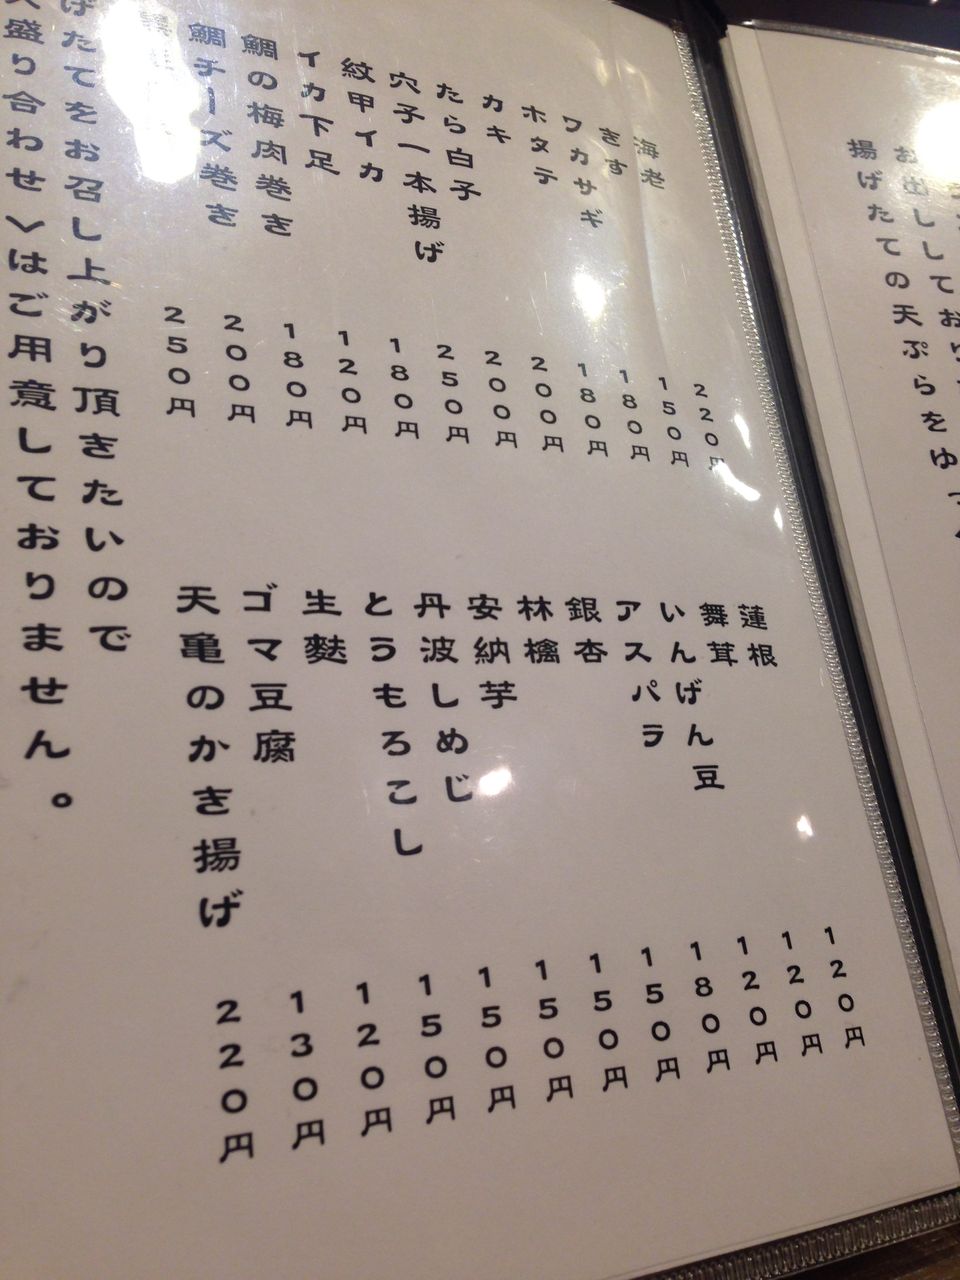 お出ししており
揚げたての天ぷらをゆっ
海老 220円
きす 150円
ワカサギ 180円
ホタテ 180円
カキ 200円
たら白子 200円
穴子一本揚げ 250円
紋甲イカ 180円
イカ下足 120円
鯛の梅肉巻き 180円
鯛チーズ巻き 200円
250円
蓮根 120円
舞茸 120円
いんげん豆 120円
アスパラ 180円
銀杏 150円
林檎 150円
安納芋 150円
丹波しめじ 150円
とうもろこし 150円
生麩 120円
ゴマ豆腐 130円
天亀のかき揚げ 220円
げたてをお召し上がり頂きたいので
盛り合わせ＞はご用意しておりません。